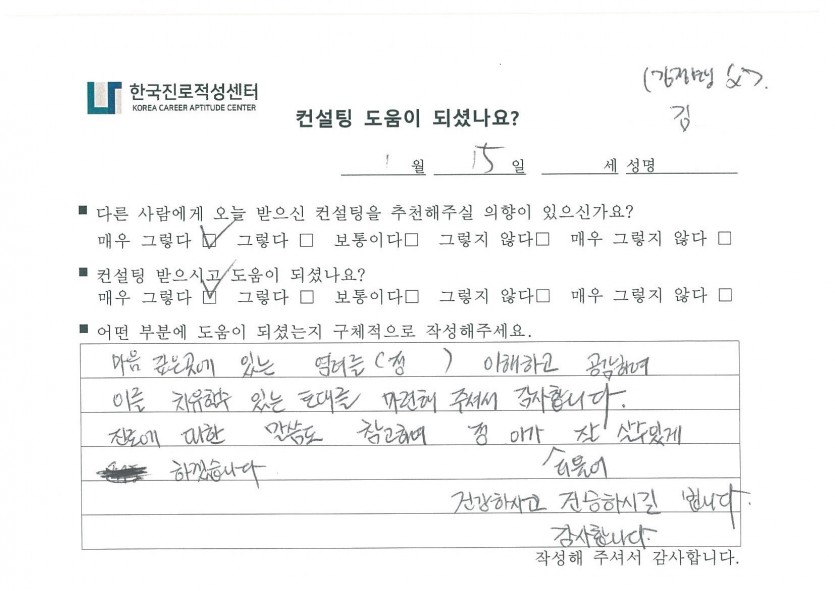 한국진로적성센터
KOREA CAREER APTITUDE CENTER
컨설팅 도움이 되셨나요?
김
1 월 15 일 세 성명
■ 다른 사람에게 오늘 받으신 컨설팅을 추천해주실 의향이 있으신가요?
매우 그렇다 ☑ 그렇다 □ 보통이다□ 그렇지 않다□ 매우 그렇지 않다 □
■ 컨설팅 받으시고 도움이 되셨나요?
매우 그렇다 ☑ 그렇다 □ 보통이다□ 그렇지 않다□ 매우 그렇지 않다 □
■ 어떤 부분에 도움이 되셨는지 구체적으로 작성해주세요.
마음 깊은곳에 있는 염려를 (정 ) 이해하고 공감하며
이를 치유할수 있는 토대를 마련해 주셔서 감사합니다.
진로에 대한 말씀도 참고하여 정 아가 잘 살수있게
하겠습니다 더불어
건강하시고 건승하시길 빕니다.
감사합니다.
작성해 주셔서 감사합니다.